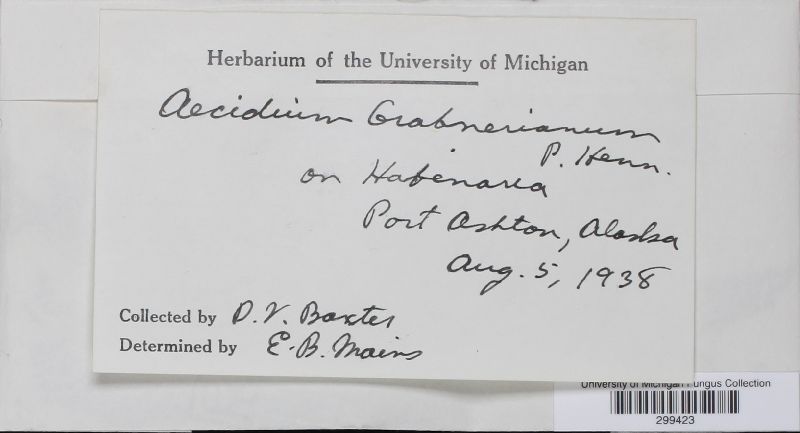 Herbarium of the University of Michigan
Aecidium Grabnerianum
P. Henn.
on Habenaria
Port Ashton, Alaska
Aug. 5, 1938
Collected by D. V. Baxter
Determined by E. B. Mains
University of Michigan Fungus Collection
299423